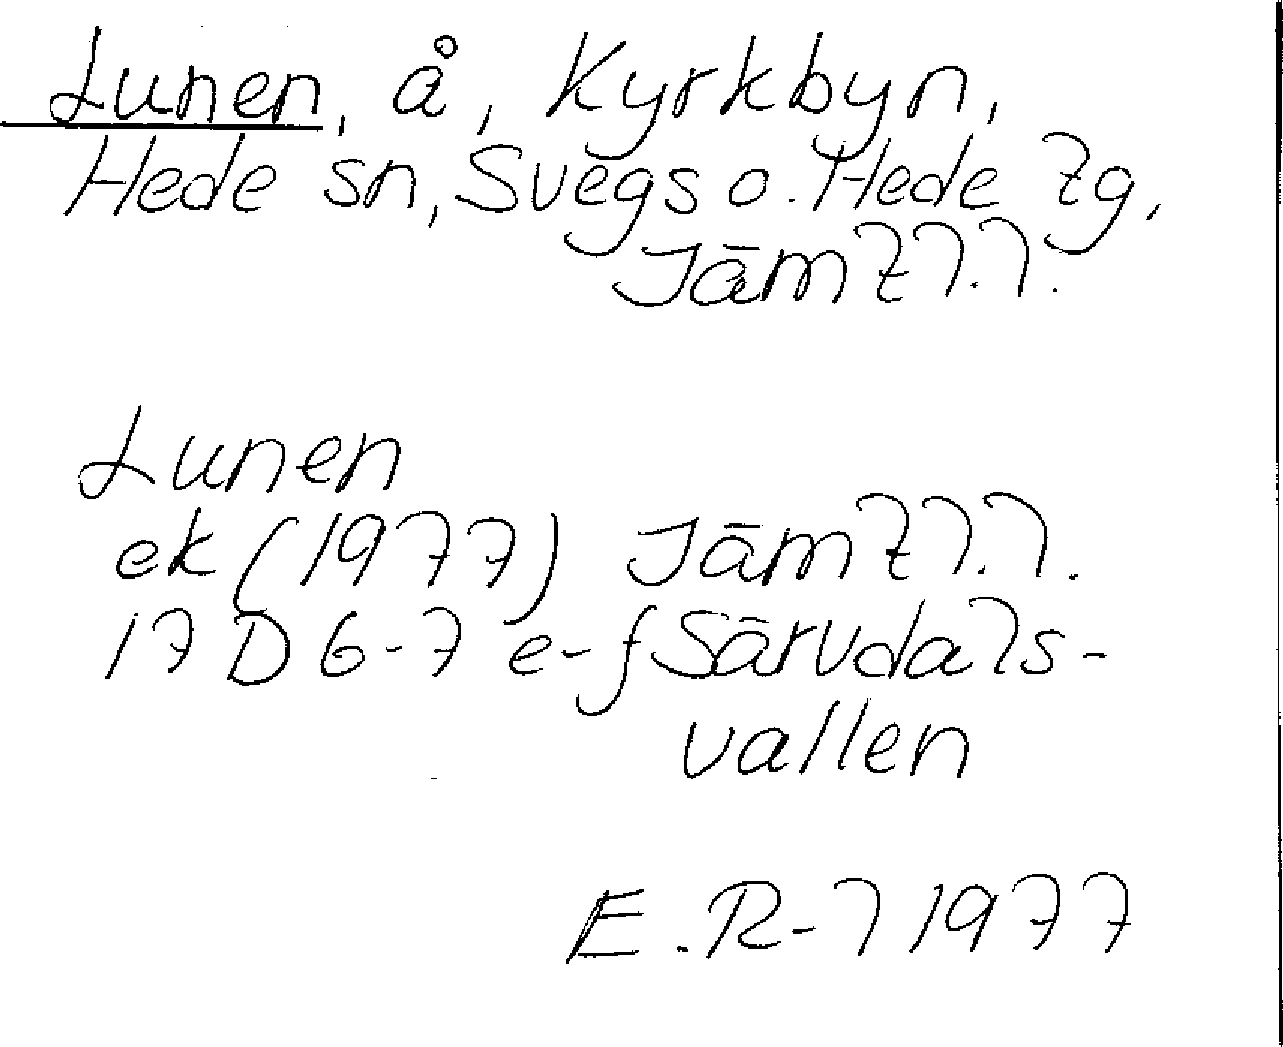 Lunen, å, Kyrkbyn,
Hede sn, Svegs o. Hede tg,
Jämtl.l.
Lunen
ek (1977) Jämtl.l.
17 D 6-7 e-f Särvdals-
vallen
E.R-l 1977